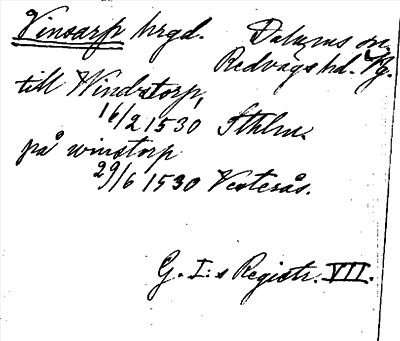 Vinsarp hrgd. Dalums sn
Redvägs hd. Vg.
till Windstorp,
16/2 1530 Sthlm.
på winstorp
29/6 1530 Vesterås.
G. I:s Registr. VII.